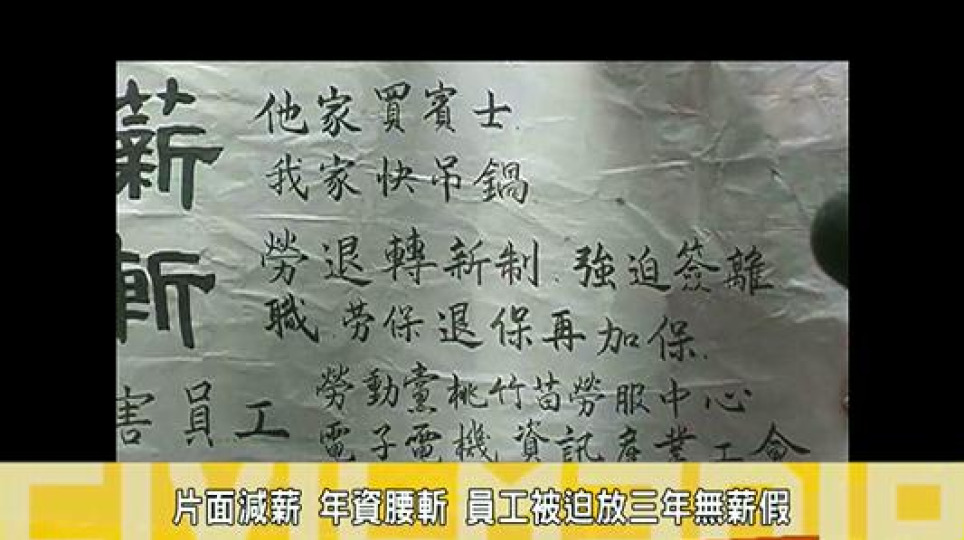 薪
斬
害員工
他家買賓士.
我家快吊鍋.
勞退轉新制.強迫簽離
職.勞保退保再加保.
勞動黨桃竹苗勞服中心
電子電機資訊產業工會
片面減薪 年資腰斬 員工被迫放三年無薪假